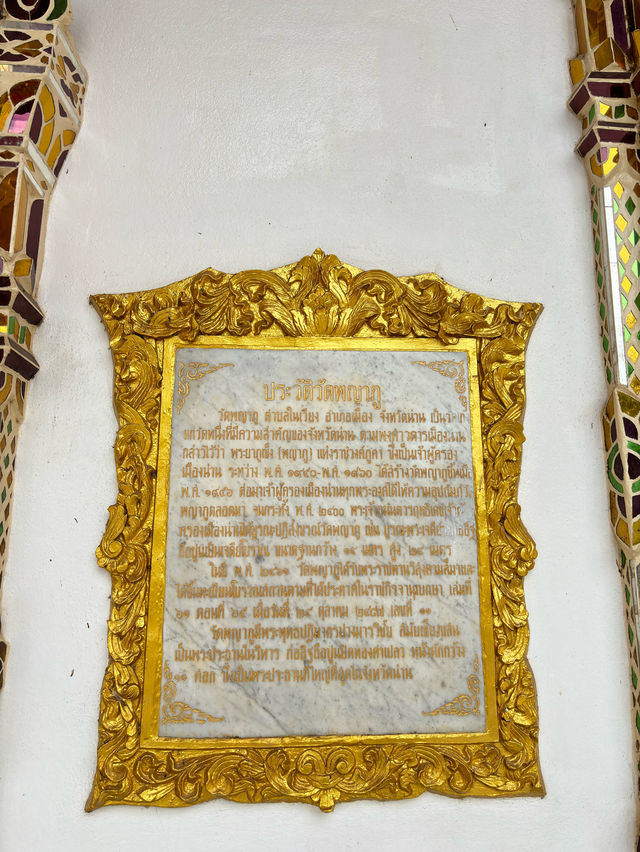 ประวัติวัดพญาภู
วัดพญาภู ตำบลในเวียง อำเภอเมือง จังหวัดน่าน เป็นวัด
แก่วัดหนึ่งที่มีความสำคัญของจังหวัดน่าน ตามพงศาวดารเมืองน่าน
กล่าวไว้ว่า พระยาภูเข็ง (พญาภู) แห่งราชวงศ์ภูคา ซึ่งเป็นเจ้าผู้ครอง
เมืองน่าน ระหว่าง พ.ศ. ๑๙๔๐-พ.ศ. ๑๙๖๐ ได้สร้างวัดพญาภูขึ้นเมื่อ
พ.ศ. ๑๙๕๖ ต่อมาเจ้าผู้ครองเมืองน่านทุกพระองค์ได้ให้ความอุปถัมภ์วัด
พญาภูตลอดมา จนกระทั่ง พ.ศ. ๒๔๐๐
ครองเมืองน่านได้บูรณะปฏิสังขรณ์วัดพญาภู เช่น บูรณะพระเจดีย์
ถือปูนเป็นเจดีย์โบราณ ขนาดฐานกว้าง ๑๔ เมตร สูง ๒๙ เมตร
ในปี พ.ศ. ๒๔๖๑ วัดพญาภูได้รับพระราชทานวิสุงคามสีมาและ
ได้ขึ้นทะเบียนโบราณสถานตามที่ได้ประกาศในราชกิจจานุเบกษา เล่มที่
ตอนที่ ๖๕ เมื่อวันที่ ๒๙ ตุลาคม ๒๔๘๗ เลขที่ ๑๑
วัดพญาภูมีพระพุทธปฏิมากรปางมารวิชัย สมัยเชียงแสน
เป็นพระประธานในวิหาร ก่ออิฐถือปูนปิดทองคำเปลว หน้าตักกว้าง
๑๐ ศอก ซึ่งเป็นพระประธานที่ใหญ่ที่สุดในจังหวัดน่าน